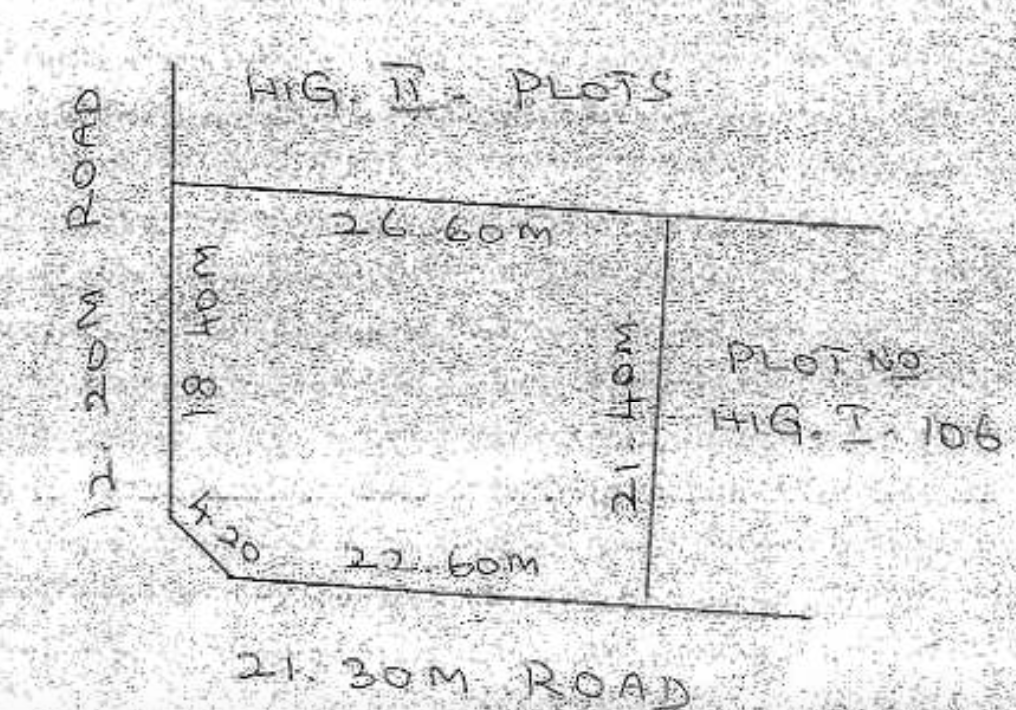 HIG. II. PLOTS
12.20M ROAD
26.60m
18.40m
21.40m
PLOT NO
HIG. I. 106
4.20
22.60m
21.30M ROAD